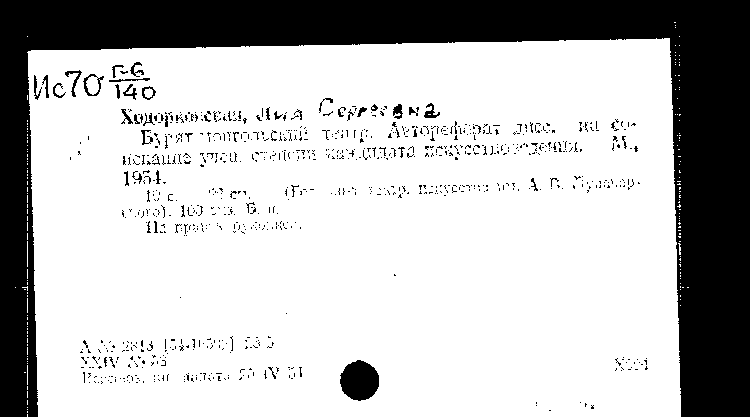 Ис70 Г-6
140
Ходорковская, Лия Сергеевна
Бурят-монгольский театр. Автореферат дисс. на со-
искание учен. степени кандидата искусствоведения. М.,
1954.
19 с. 20 см. (Гос. ин-т театр. искусства им. А. В. Луначар-
ского). 100 экз. Б. ц.
На правах рукописи.
А № 2818 53 Б
XXIV № 53
кн. палата 20 IV 54